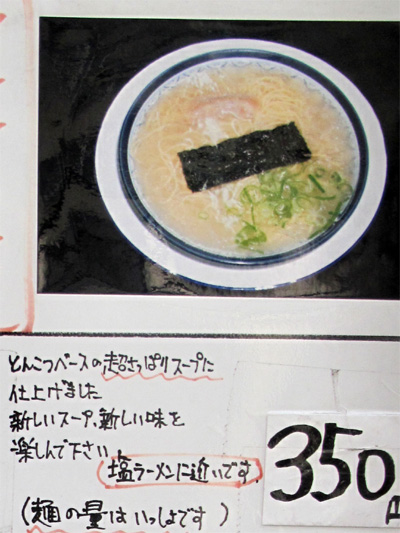 とんこつベースの超さっぱりスープに
仕上げました
新しいスープ、新しい味を
楽しんで下さい。
塩ラーメンに近いです。
(麺の量はいっしょです)
350円